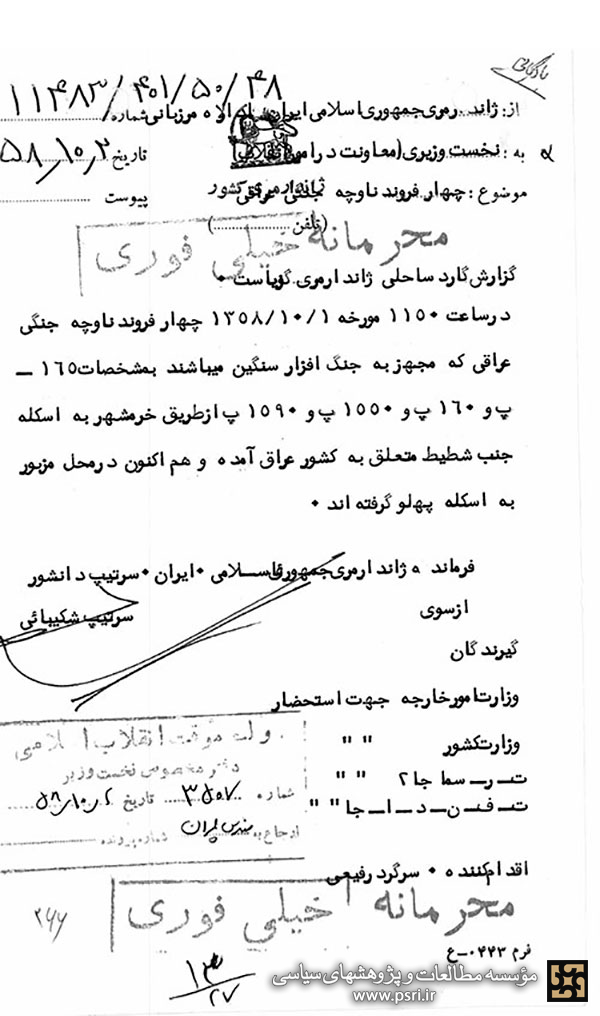 بایگانی
از: ژاندارمری جمهوری اسلامی ایران اداره مرزبانی شماره ۱۱۴۸۳/۴۰۱/۵۰/۴۸
به : نخست وزیری (معاونت در امور انقلاب) تاریخ ۵۸/۱۰/۲
موضوع : چهار فروند ناوچه جنگی عراقی پیوست
ژاندارمری کشور
(تلفن ..............)
محرمانه خیلی فوری
گزارش گارد ساحلی ژاندارمری گویاست .
در ساعت ۱۱۵۰ مورخه ۱۳۵۸/۱۰/۱ چهار فروند ناوچه جنگی
عراقی که مجهز به جنگ افزار سنگین میباشند بمشخصات ۱۶۵ ــ
پ و ۱۶۰ پ و ۱۵۵۰ پ و ۱۵۹۰ پ ازطریق خرمشهر به اسکله
جنب شطیط متعلق به کشور عراق آمده و هم اکنون درمحل مزبور
به اسکله پهلو گرفته اند .
فرمانده ژاندارمری جمهوری اسلامی . ایران . سرتیپ دانشور
ازسوی سرتیپ شکیبائی
گیرندگان
وزارت امور خارجه جهت استحضار
وزارت کشور " "
ت ــ ر ــ سما جا ۲ " "
ت ــ ف ــ ن ــ د ــ ا ــ جا " "
دولت موقت انقلاب اسلامی
دفتر مخصوص نخست وزیر
شماره ۳۵۰۷ تاریخ ۵۸/۱۰/۲
ارجاع به شماره پرونده
اقدام کننده . سرگرد رفیعی
محرمانه خیلی فوری
۲۶۶
فرم ۰۴۴۳-ع
۱۳/۲۷
مؤسسه مطالعات و پژوهشهای سیاسی
www.psri.ir